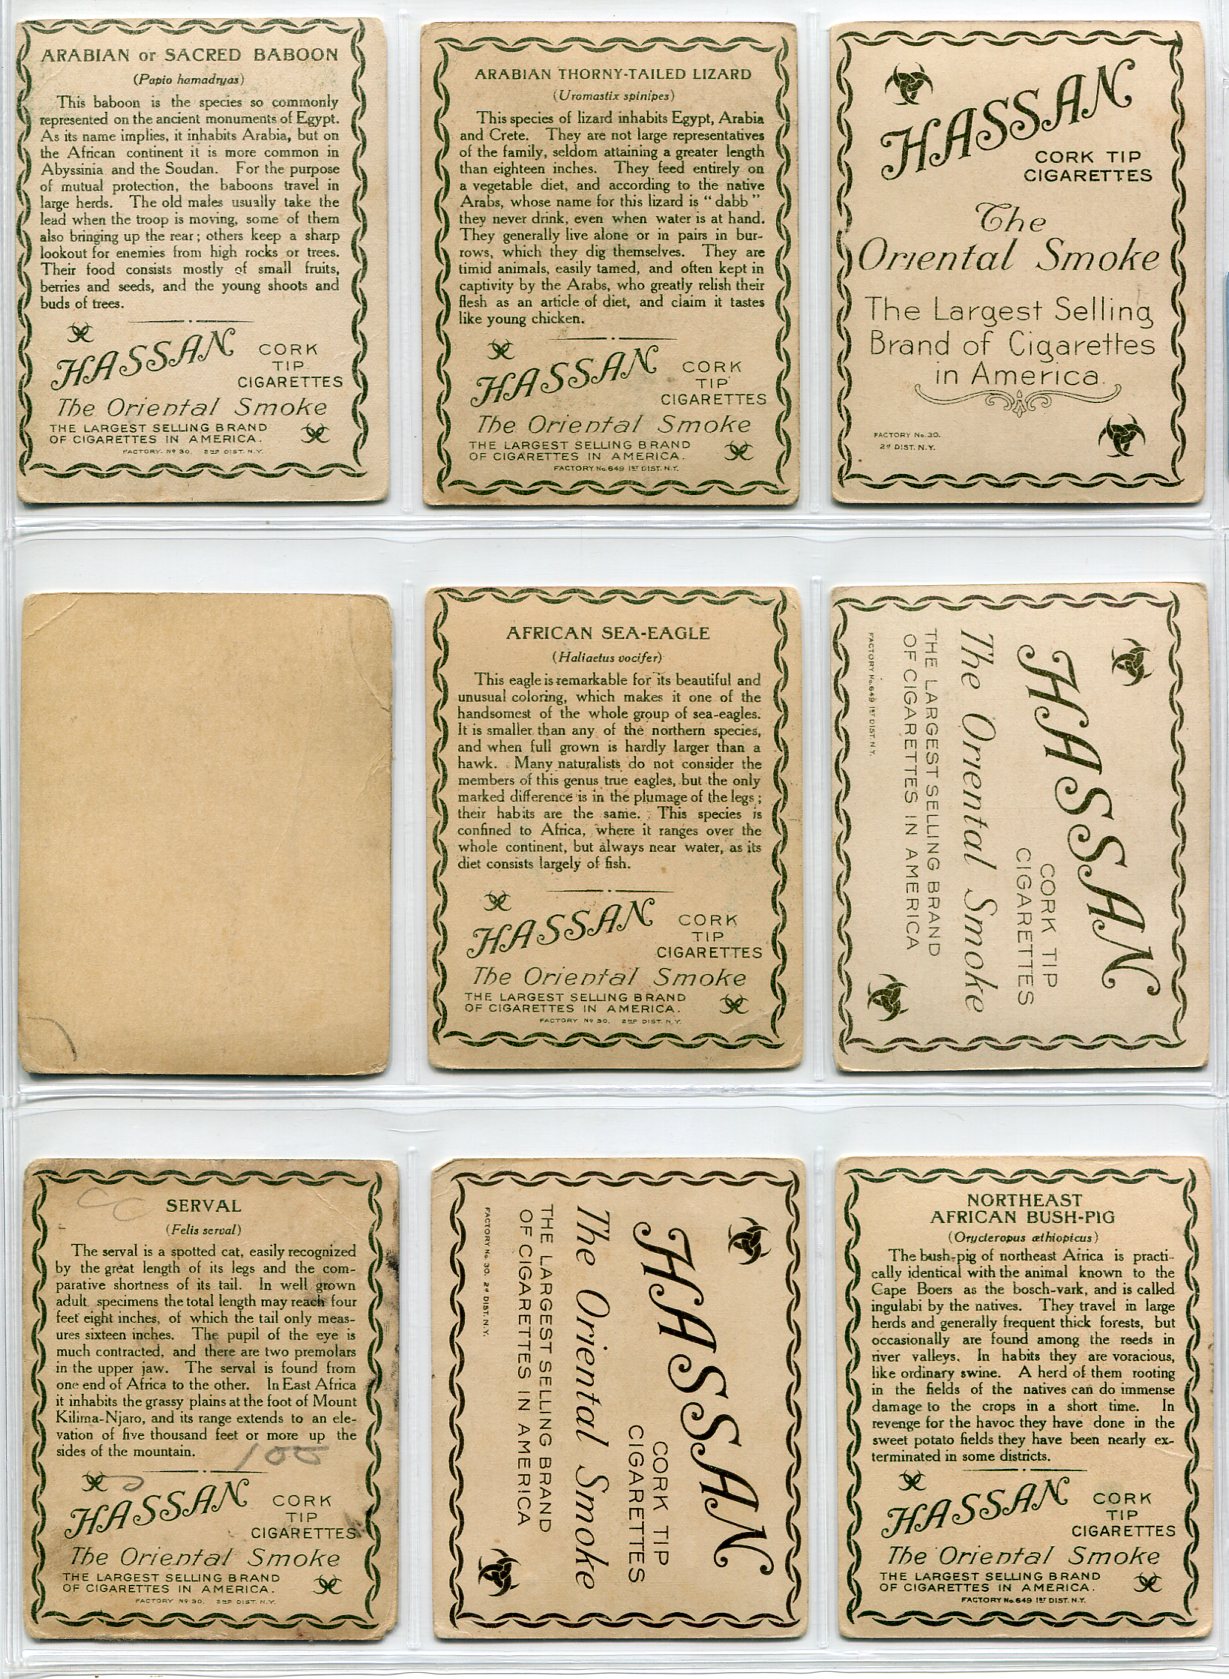 ARABIAN or SACRED BABOON
(Papio hamadryas)
This baboon is the species so commonly
represented on the ancient monuments of Egypt.
As its name implies, it inhabits Arabia, but on
the African continent it is more common in
Abyssinia and the Soudan. For the purpose
of mutual protection, the baboons travel in
large herds. The old males usually take the
lead when the troop is moving, some of them
also bringing up the rear; others keep a sharp
lookout for enemies from high rocks or trees.
Their food consists mostly of small fruits,
berries and seeds, and the young shoots and
buds of trees.
HASSAN
CORK
TIP
CIGARETTES
The Oriental Smoke
THE LARGEST SELLING BRAND
OF CIGARETTES IN AMERICA.
FACTORY. Nº 30. 2ND DIST. N.Y.
ARABIAN THORNY-TAILED LIZARD
(Uromastix spinipes)
This species of lizard inhabits Egypt, Arabia
and Crete. They are not large representatives
of the family, seldom attaining a greater length
than eighteen inches. They feed entirely on
a vegetable diet, and according to the native
Arabs, whose name for this lizard is "dabb"
they never drink, even when water is at hand.
They generally live alone or in pairs in bur-
rows, which they dig themselves. They are
timid animals, easily tamed, and often kept in
captivity by the Arabs, who greatly relish their
flesh as an article of diet, and claim it tastes
like young chicken.
HASSAN
CORK
TIP
CIGARETTES
The Oriental Smoke
THE LARGEST SELLING BRAND
OF CIGARETTES IN AMERICA.
FACTORY No. 649 1ST DIST. N.Y.
HASSAN
CORK TIP
CIGARETTES
The
Oriental Smoke
The Largest Selling
Brand of Cigarettes
in America.
FACTORY No. 30.
2D DIST. N.Y.
AFRICAN SEA-EAGLE
(Haliaetus vocifer)
This eagle is remarkable for its beautiful and
unusual coloring, which makes it one of the
handsomest of the whole group of sea-eagles.
It is smaller than any of the northern species,
and when full grown is hardly larger than a
hawk. Many naturalists do not consider the
members of this genus true eagles, but the only
marked difference is in the plumage of the legs;
their habits are the same. This species is
confined to Africa, where it ranges over the
whole continent, but always near water, as its
diet consists largely of fish.
HASSAN
CORK
TIP
CIGARETTES
The Oriental Smoke
THE LARGEST SELLING BRAND
OF CIGARETTES IN AMERICA.
FACTORY Nº 30. 2ND DIST. N.Y.
HASSAN
CORK TIP
CIGARETTES
The Oriental Smoke
THE LARGEST SELLING BRAND
OF CIGARETTES IN AMERICA
FACTORY No. 649 1ST DIST. N.Y.
SERVAL
(Felis serval)
The serval is a spotted cat, easily recognized
by the great length of its legs and the com-
parative shortness of its tail. In well grown
adult specimens the total length may reach four
feet eight inches, of which the tail only meas-
ures sixteen inches. The pupil of the eye is
much contracted, and there are two premolars
in the upper jaw. The serval is found from
one end of Africa to the other. In East Africa
it inhabits the grassy plains at the foot of Mount
Kilima-Njaro, and its range extends to an ele-
vation of five thousand feet or more up the
sides of the mountain.
100
HASSAN
CORK
TIP
CIGARETTES
The Oriental Smoke
THE LARGEST SELLING BRAND
OF CIGARETTES IN AMERICA.
FACTORY Nº 30. 2ND DIST. N.Y.
HASSAN
CORK TIP
CIGARETTES
The Oriental Smoke
THE LARGEST SELLING BRAND
OF CIGARETTES IN AMERICA
FACTORY No. 30. 2D DIST. N.Y.
NORTHEAST
AFRICAN BUSH-PIG
(Orycteropus æthiopicus)
The bush-pig of northeast Africa is practi-
cally identical with the animal known to the
Cape Boers as the bosch-vark, and is called
ingulabi by the natives. They travel in large
herds and generally frequent thick forests, but
occasionally are found among the reeds in
river valleys. In habits they are voracious,
like ordinary swine. A herd of them rooting
in the fields of the natives can do immense
damage to the crops in a short time. In
revenge for the havoc they have done in the
sweet potato fields they have been nearly ex-
terminated in some districts.
HASSAN
CORK
TIP
CIGARETTES
The Oriental Smoke
THE LARGEST SELLING BRAND
OF CIGARETTES IN AMERICA.
FACTORY No. 649 1ST DIST. N.Y.